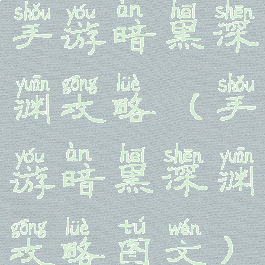 shǒu yóu àn hēi shēn
手游暗黑深
yuān gōng lüè shǒu
渊攻略（手
yóu àn hēi shēn yuān
游暗黑深渊
gōng lüè tú wén
攻略图文）